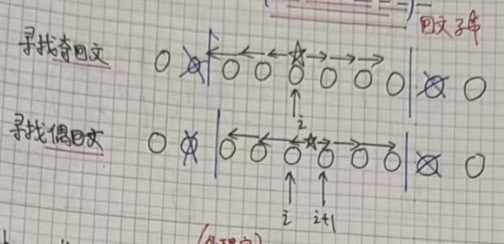 回文子串
寻找奇回文
i
寻找偶回文
i i+1